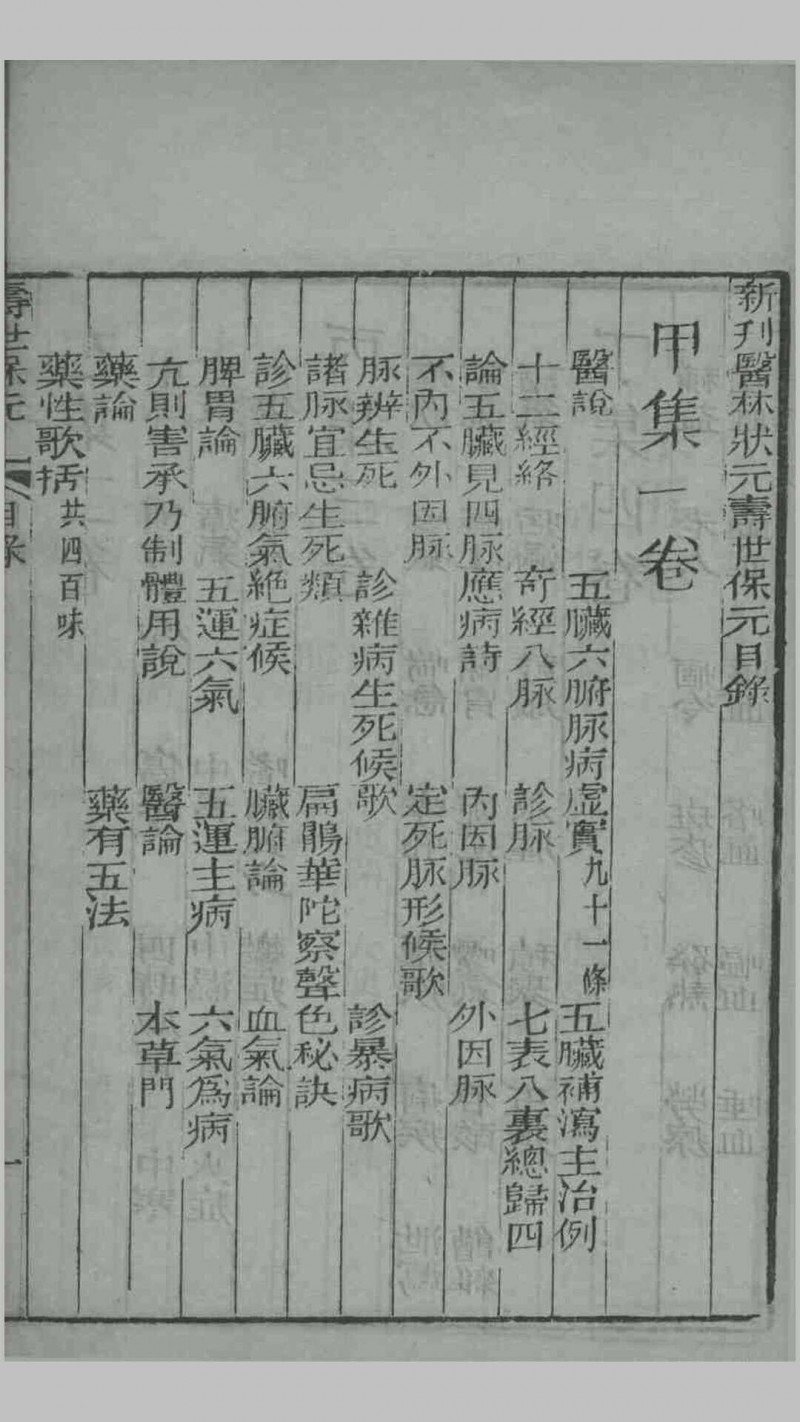 新刊醫林狀元壽世保元目錄
甲集一卷
醫說 五臟六腑脉病虛實九十一條 五臟補瀉主治例
十二經絡 奇經八脉 診脉 七表八裏總歸四
論五臟見四脉應病詩 內因脉 外因脉
不內不外因脉 定死脉形候歌
脉辨生死 診雜病生死候歌 診暴病歌
諸脉宜忌生死類 扁鵲華陀察聲色秘訣
診五臟六腑氣絕症候 臟腑論 血氣論
脾胃論 五運六氣 五運主病 六氣為病
亢則害承乃制體用說 醫論 本草門
藥論 藥有五法
藥性歌括共四百味
壽世保元 目錄 一